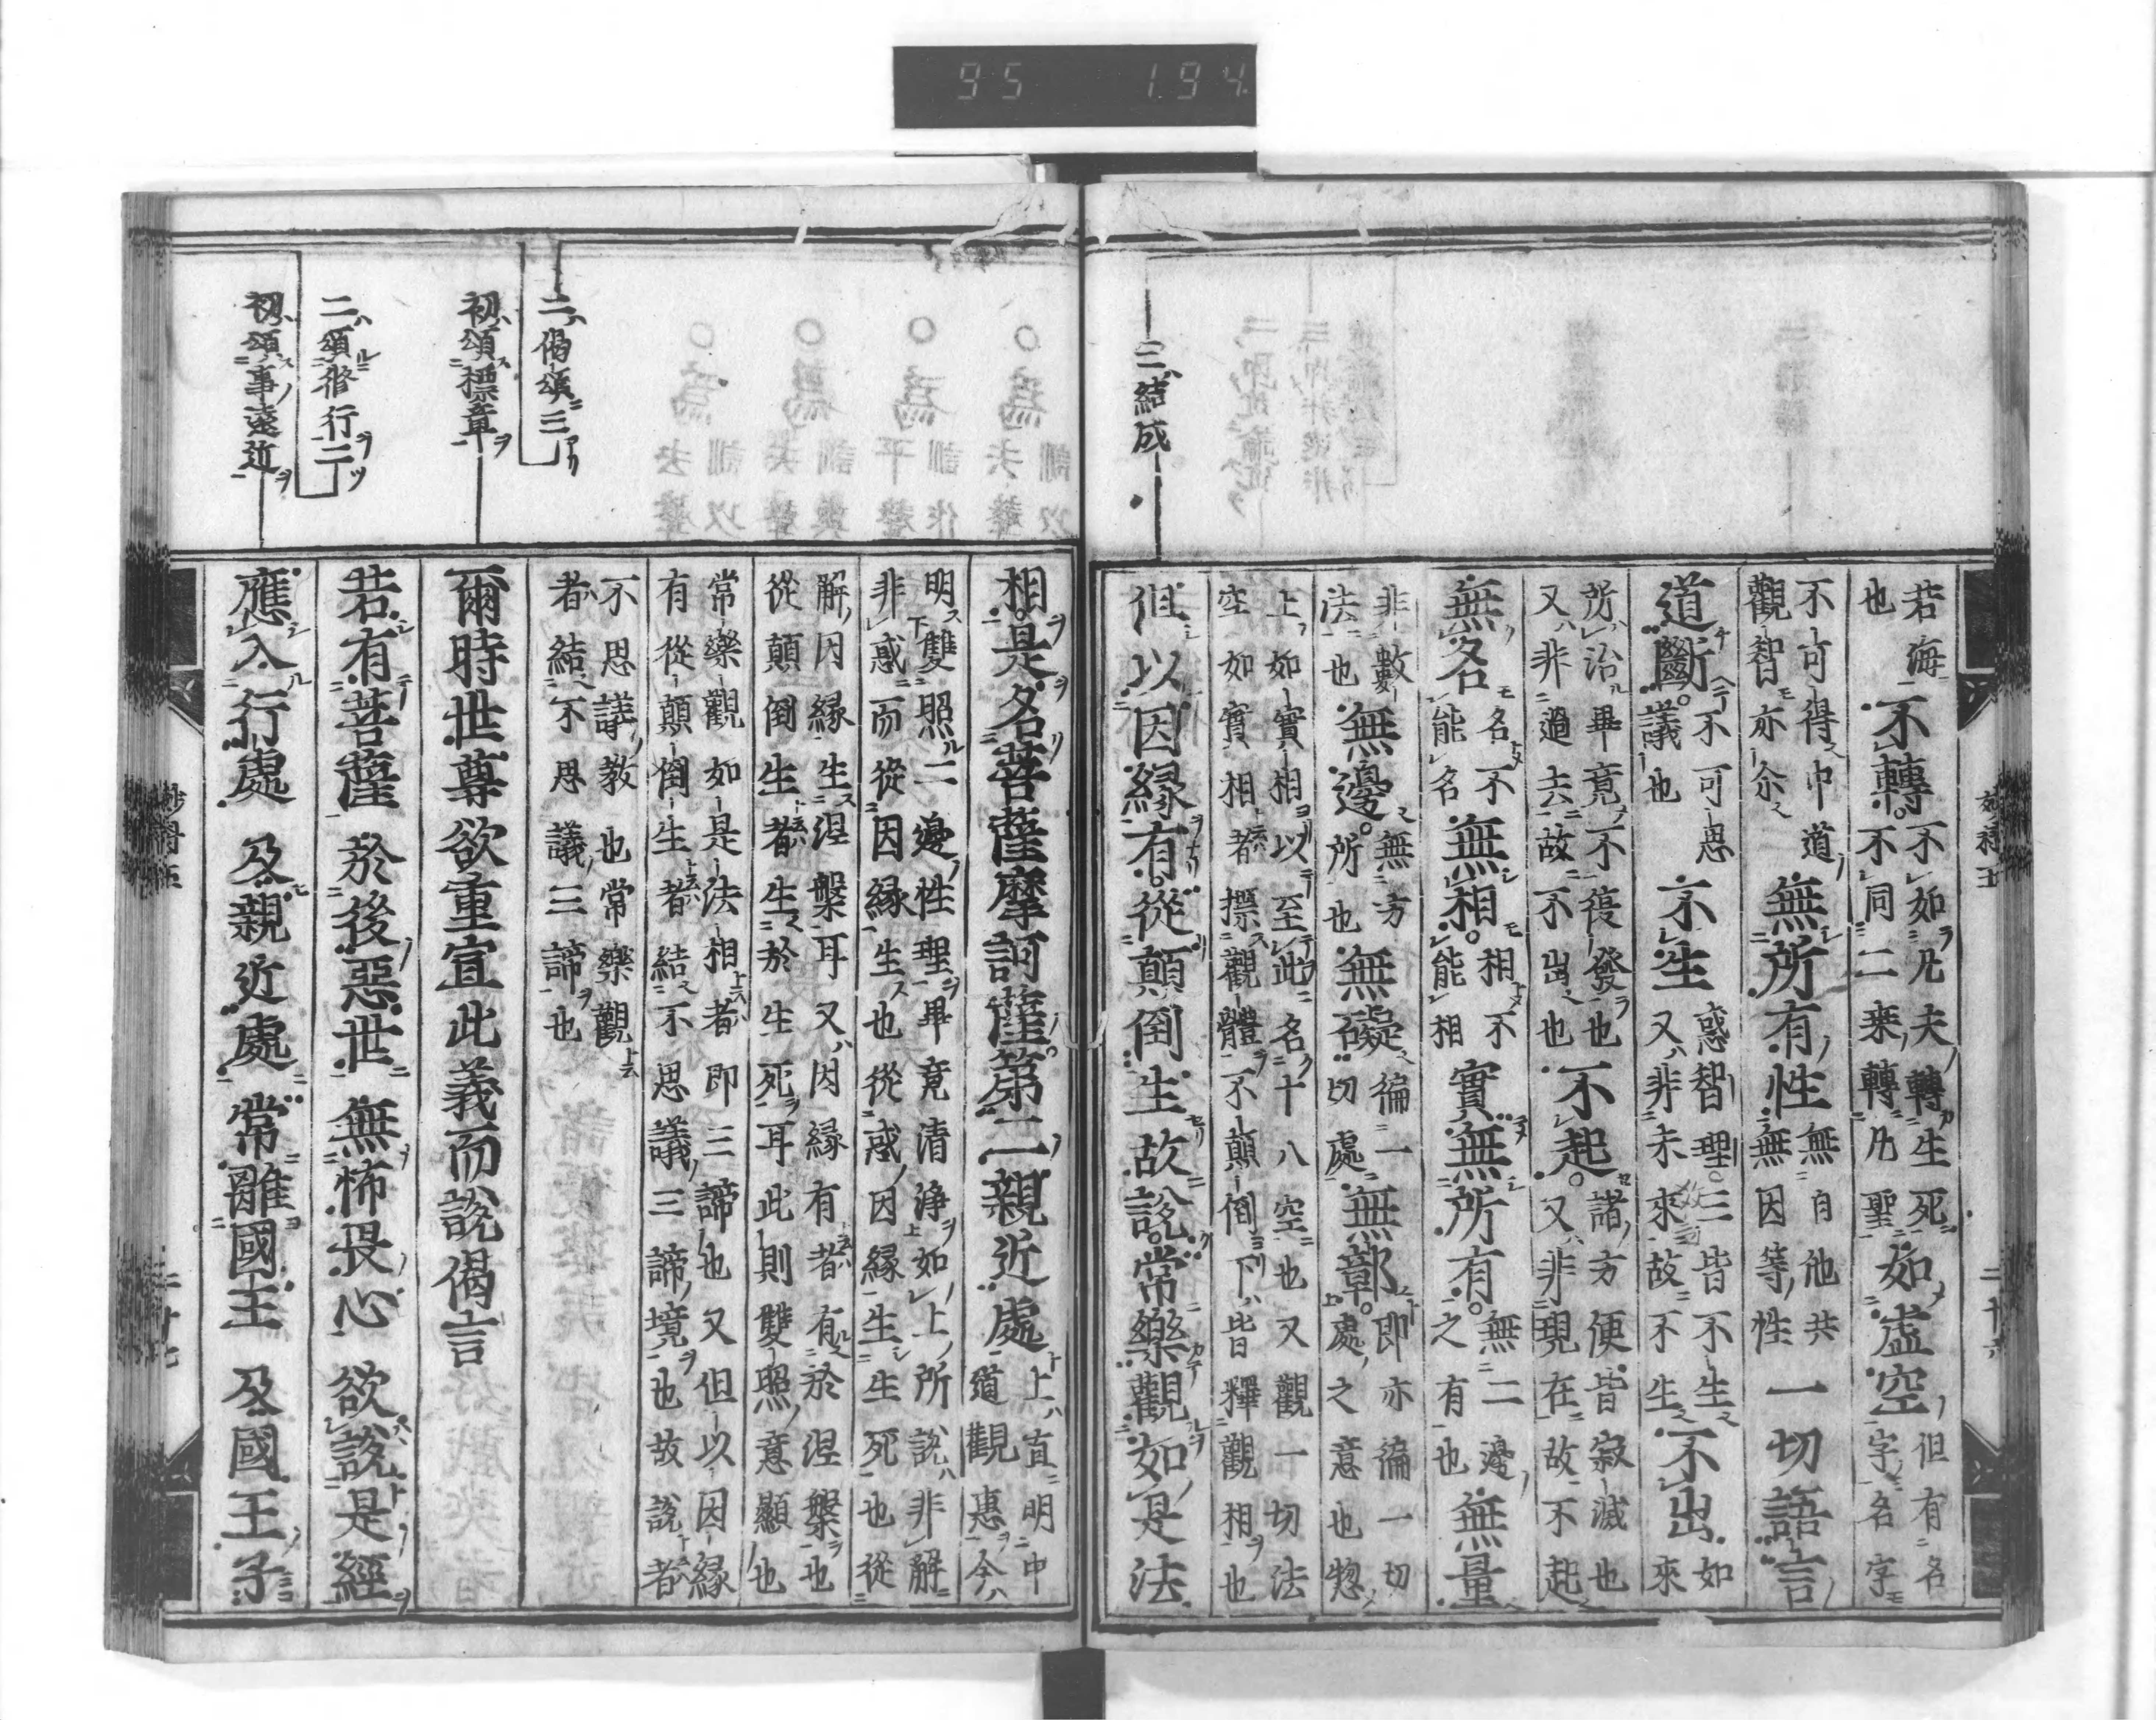 三結成
若海也不轉不如凡夫轉生死不同二乘轉凡聖如虛空但有名字名字
不可得中道觀智亦尒無所有性無自他共無因等性一切語言
道斷不可思議也不生惑智理三皆不生又非未來故不生不出如來
所治畢竟不復發也又非過去故不出也不起諸方便皆寂滅也又非現在故不起
無名名不能名無相相不能相實無所有無二邊之有也無量
非數法也無邊無方所也無礙徧一切處無鄣即亦徧一切處之意也惣
上如實相以至此名十八空也又觀一切法空如實相者摽觀體不顛倒下皆釋觀相也
但以因緣有從顛倒生故說常樂觀如是法
二偈頌三
初頌標章
二頌修行二
初頌事遠近
相是名菩薩摩訶薩第二親近處上直明中道觀惠今
明雙照二邊性理畢竟清淨如上所說非解非惑而從因緣生也從惑因緣生生死也從
解因緣生涅槃耳又因緣有者有於涅槃也從顛倒生者生於生死耳此則雙照意顯也
常樂觀如是法相者即三諦也又但以因緣有從顛倒生者結不思議三諦境也故說者
不思議教也常樂觀者結不思議三諦也
爾時世尊欲重宣此義而說偈言
若有菩薩 於後惡世 無怖畏心 欲說是經
應入行處 及親近處 常離國王 及國王子
二十七
95 194